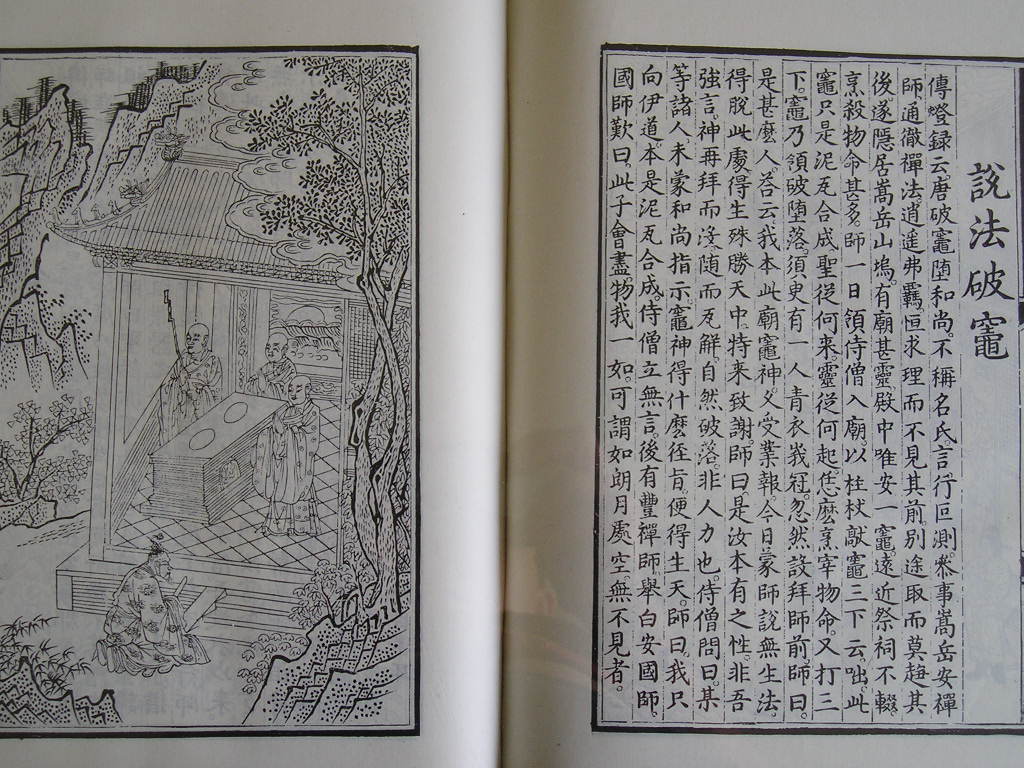 說法破竈
傳燈録云唐破竈墮和尚不稱名氏。言行叵測。叅事嵩岳安禪
師通徹禪法。逍遥弗羈。恒求理而不見其前。別途取而莫趂其
後。遂隱居嵩岳山塢。有廟甚靈。殿中唯安一竈。遠近祭祠不輟。
烹殺物命甚多。師一日領侍僧入廟。以柱杖敲竈三下云。咄。此
竈只是泥瓦合成。聖從何來。靈從何起。恁麽烹宰物命。又打三
下。竈乃傾破墮落。須臾有一人青衣峩冠。忽然設拜師前。師曰。
是甚麼人。荅云。我本此廟竈神。久受業報。今日蒙師說無生法。
得脫此處。得生殊勝天中。特来致謝。師曰。是汝本有之性。非吾
強言。神再拜而沒。随而瓦觧。自然破落。非人力也。侍僧問曰。某
等諸人。未蒙和尚指示。竈神得什麽徑旨。便得生天。師曰。我只
向伊道。本是泥瓦合成。侍僧立無言。後有豐禪師舉白安國師。
國師歎曰。此子會盡物我一如。可謂如朗月處空。無不見者。